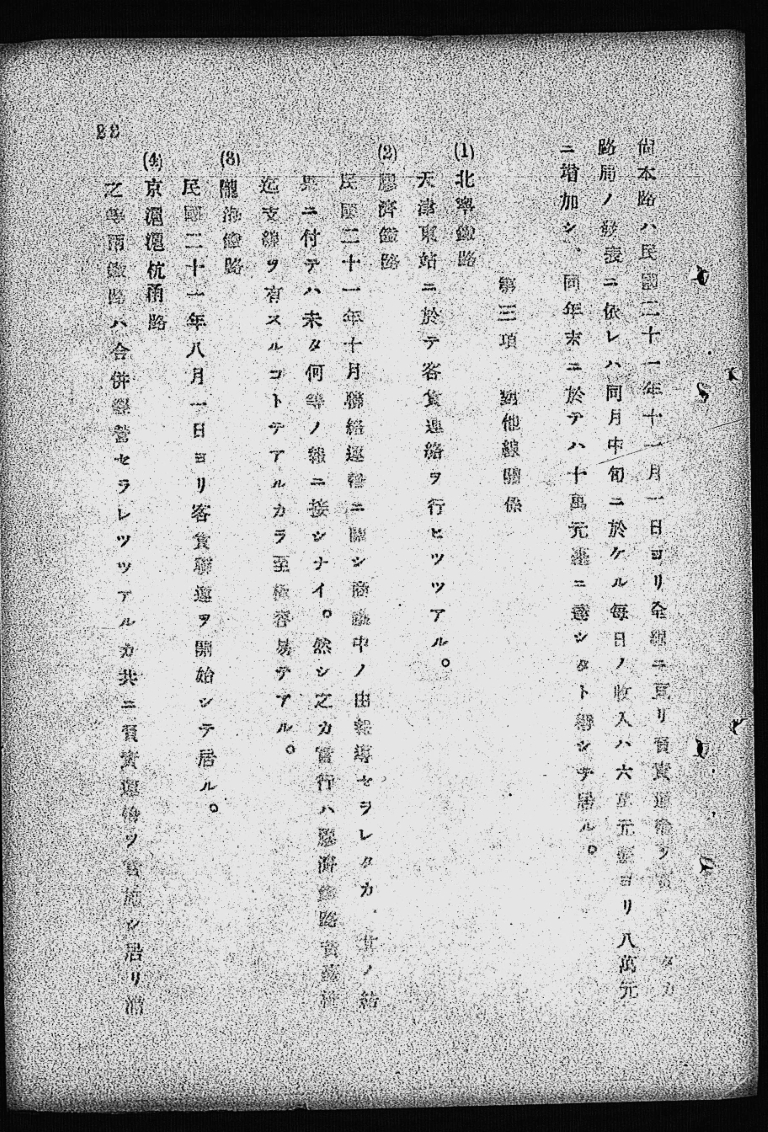 尙本路ハ民國二十一年十一月一日ヨリ全線ニ亘リ負責運輸ヲ タカ
路局ノ發表ニ依レハ同月中旬ニ於ケル每日ノ收入ハ六萬元臺ヨリ八萬元
ニ增加シ、同年末ニ於テハ十萬元臺ニ達シタト稱シテ居ル。
第三項 對他線關係
(1) 北寧鐵路
天津東站ニ於テ客貨連絡ヲ行ヒツツアル。
(2) 膠濟鐵路
民國二十一年十月聯絡運輸ニ關シ商議中ノ由報導セラレタカ、其ノ結
果ニ付テハ未タ何等ノ報ニ接シナイ。然シ之カ實行ハ膠濟鐵路
迄支線ヲ有スルコトテアルカラ至極容易テアル。
(3) 隴海鐵路
民國二十一年八月一日ヨリ客貨聯運ヲ開始シテ居ル。
(4) 京滬滬杭甬路
之等兩鐵路ハ合併經營セラレツツアルカ共ニ負責運輸ヲ實施シ居リ
22